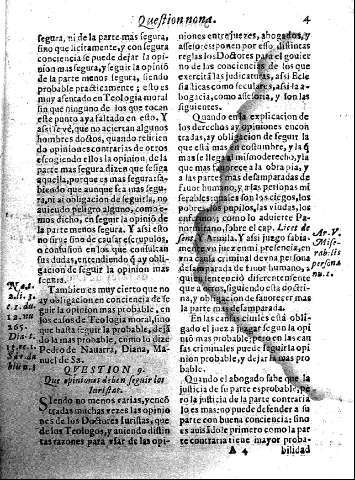 Question nona. 4
segura, ni de la parte mas segura,
sino que licitamente, y con segura
conciencia se puede dejar la opi
nion mas segura, y seguir la opinió
de la parte menos segura, siendo
probable practicamente; esto es
muy asentado en Teologia moral
sin que ninguno de los que tocan
este punto aya faltado en esto, Y
assi se vé, que no aciertan algunos
hombres dostos, quando relicien
do opiniones contrarias de otros
escogiendo ellos la opinion de la
parte mas segura dizen que se siga
aquella, porque es mas segura: sa-
biendo que aunque sea mas segu-
ra, ni ai obligacion de seguirla, no
auiendo peligro alguno, como he-
mos dicho, en seguir la opinió de
la parte menos segura. Y assi esto
no sirue sino de causar escrupulos,
o confusió en los que consultan
sus dudas, entendiendo q́ ay obli-
gacion de seguir la opinion mas
segura.
Tambien es muy cierto que no
ay obligacion en conciencia de se
guir la opinion mas probable, en
los casos de Teologia moral, sino
que basta seguir la probable, dejá
do la mas probable, como lo dize
Pedro de Nauarra, Diana, Ma-
nuel de Sa.
QVESTION 9.
Que opiniones deben seguir los
Iuristas.
Siendo no menos varias, y encó
tradas muchas vezes las opinio
nes de los Doctores Iuristas, que
de los Teologos, y auiendo distin
tas razones para vsar de las opi-
niones entre juezes, abogados, y
assessores ponen por esso, distintas
reglas los Doctores para el gouier
no de las conciencias de los que
exercitá las judicaturas, assi Ecle
siasticas como seculares, assi la a-
bogacia, como assessoria, y son las
siguientes.
Quando en la explicacion de
los derechos ay opiniones encon
tradas, ay obligacion de seguir la
que está mas en costumbre, y la q́
mas se llega al mismo derecho, y la
que mas fauorece a la obra pia, y
a las partes mas desamparadas de
fauor humano, y a las personas mi
serables, quales son los ciegos, los
pobres, los pupilos, las viudas, los
enfermos, como lo aduierte Pa-
normitano, sobre el cap. Licet de
sent. Y Azuila. Y assi juzgo fabia-
mente vn juez en mi presencia, en
vna causa criminal de vna persona
desamparada de fauor humano, a
quien sentenció diferentemente
que a otros, siguiendo esta doctri-
na, y obligacion de fauorecer mas
la parte mas desamparada.
En las causas ciuiles está obli-
gado el juez a juzgar segun la opi
nió mas probable; pero en las cau
sas criminales puede seguir la opi
nion probable, y dejar la mas pro
bable.
Quando el abogado sabe que la
justicia de su parte es probable, pe
ro la justicia de la parte contraria
lo es mas: no puede defender a su
parte con buena conciencia; sino
es auisádole primero como la par
te contraria tiene mayor proba-
A 4 bilidad